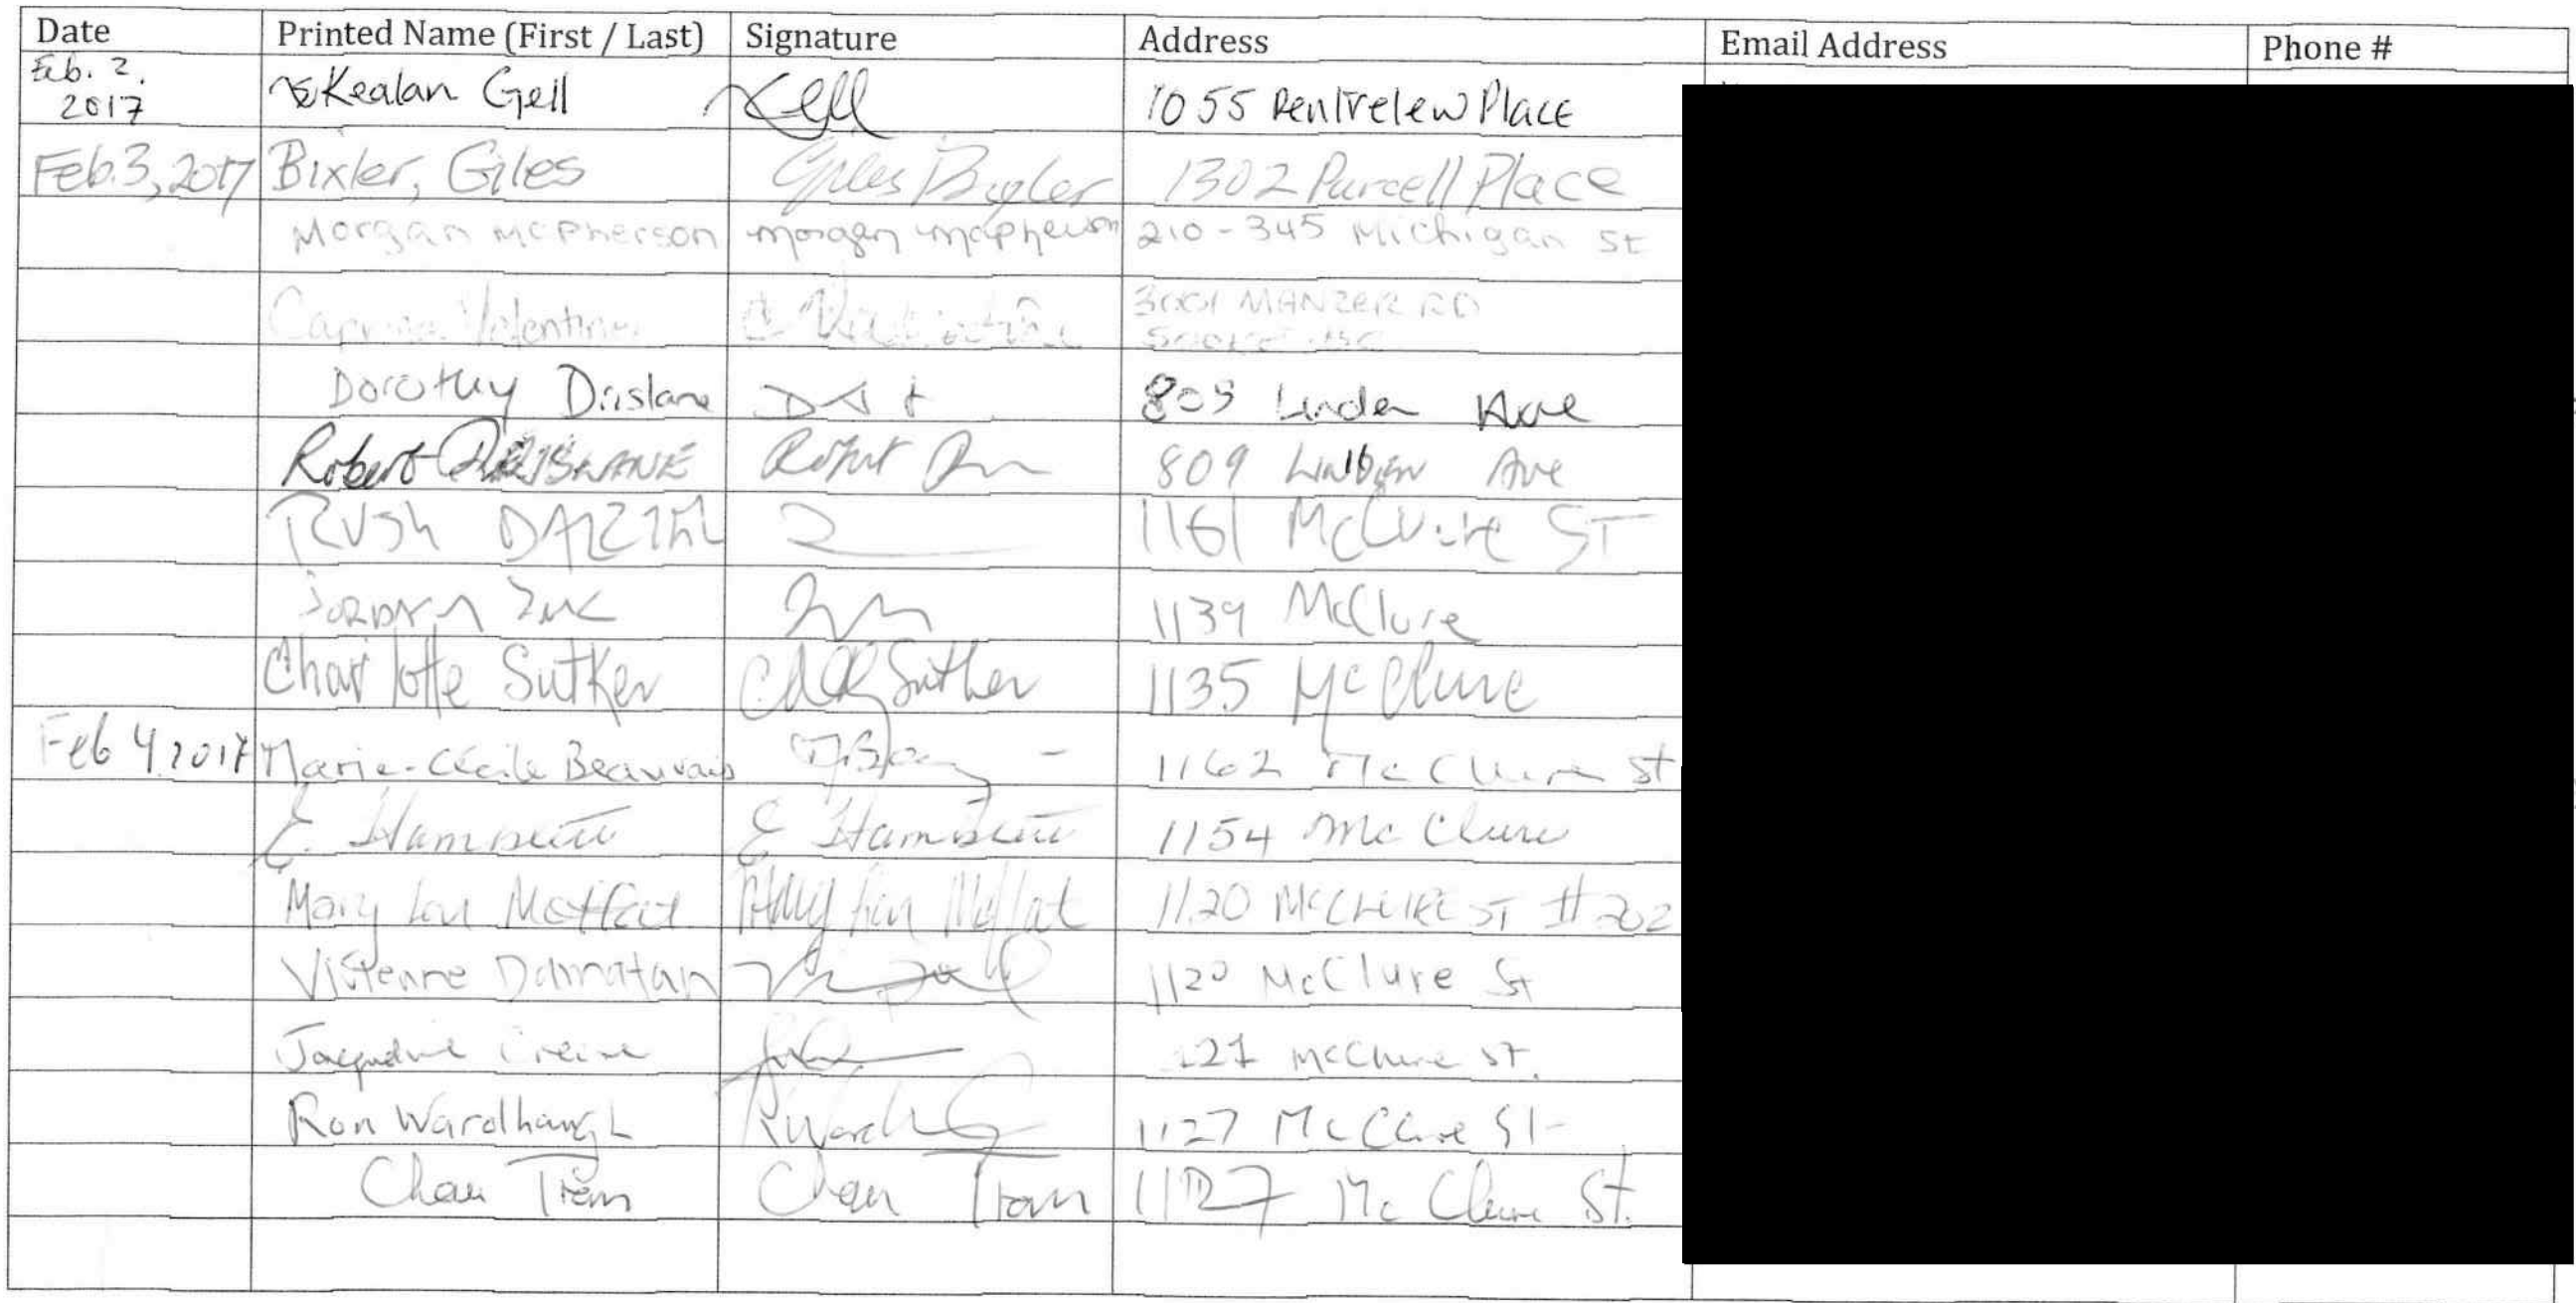 Date Printed Name (First / Last) Signature Address Email Address Phone #
Feb. 2, 2017 Kealan Gell KGell 1055 Pentrelew Place
Feb. 3, 2017 Bixler, Giles Giles Bixler 1302 Purcell Place
Morgan McPherson morgan mcpherson 210-345 Michigan St
Valentine 3001 MANZER RD
SOOKE BC
Dorothy Drislane 809 Linden Ave
Robert DRISLANE Robert 809 Linden Ave
RUSH DALZIEL 1161 McClure ST
JORDAN 1139 McClure
Charlotte Sutker Sutker 1135 McClure
Feb 4, 2017 Marie-Cécile Beauvais 1162 McClure St
E. E 1154 McClure
Mary Lou Moffat Mary Lou Moffat 1120 McCLURE ST #202
Vivienne 1120 McClure St
Jacqueline McClure St.
Ron Wardhaugh RWard 1127 McClure St
Chau Tran Chau Tran 1127 McClure St.